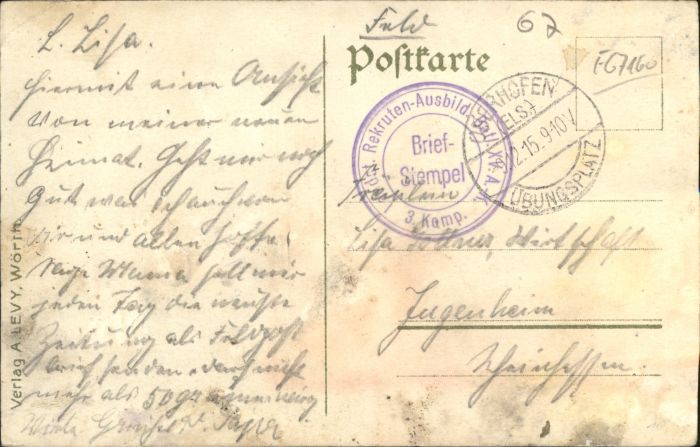 L. Lisa.
Hiermit eine Ansicht
von meiner neuen
Heimat. Geht mir noch
Gut was ich auch von
Dir und allen hoffe.
Sage Mama soll mir
jeden Tag die neuste
Zeitung als Feldpost
brief senden, darf nicht
mehr als 50 gr
Viele Grüße
Verlag A. LEVY, Wörth
Feld
67
Postkarte
FG7160
Rekruten-Ausbild.
Brief-
Stempel
3. Komp.
OBERHOFEN
(ELS)
2.15. 9-10V
ÜBUNGSPLATZ
Fräulein
Lisa Wirtschaft
Jugenheim
Rheinhessen.